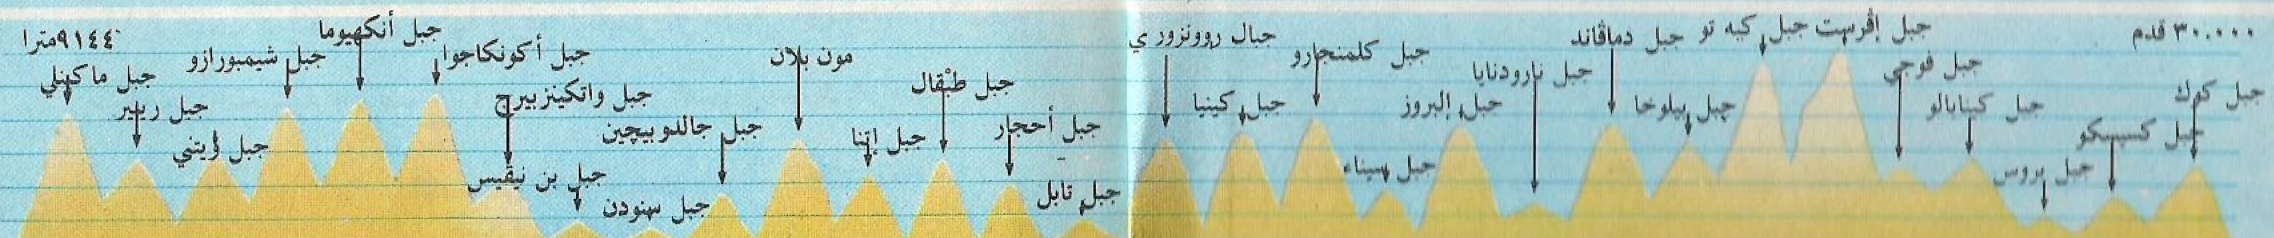 ٣٠.٠٠٠ قدم
جبل كوك
جبل كسيسكو
جبل بروس
جبل كينابالو
جبل فوجي
جبل إڤرست
جبل كيه تو
جبل بيلوخا
جبل دماڤاند
جبل نارودنايا
جبل إلبروز
جبل سيناء
جبل كلمنجارو
جبل كينيا
جبال روونزوري
جبل تابل
جبل أحجار
جبل طبْقال
جبل إتنا
مون بلان
جبل جالدوبيچين
جبل سنودن
جبل بن نيڤيس
جبل واتكينزبيرج
جبل أكونكاجوا
جبل أنكهيوما
جبل شيمبورازو
جبل ڤريتني
جبل رينير
جبل ماكينلي
٩١٤٤مترا